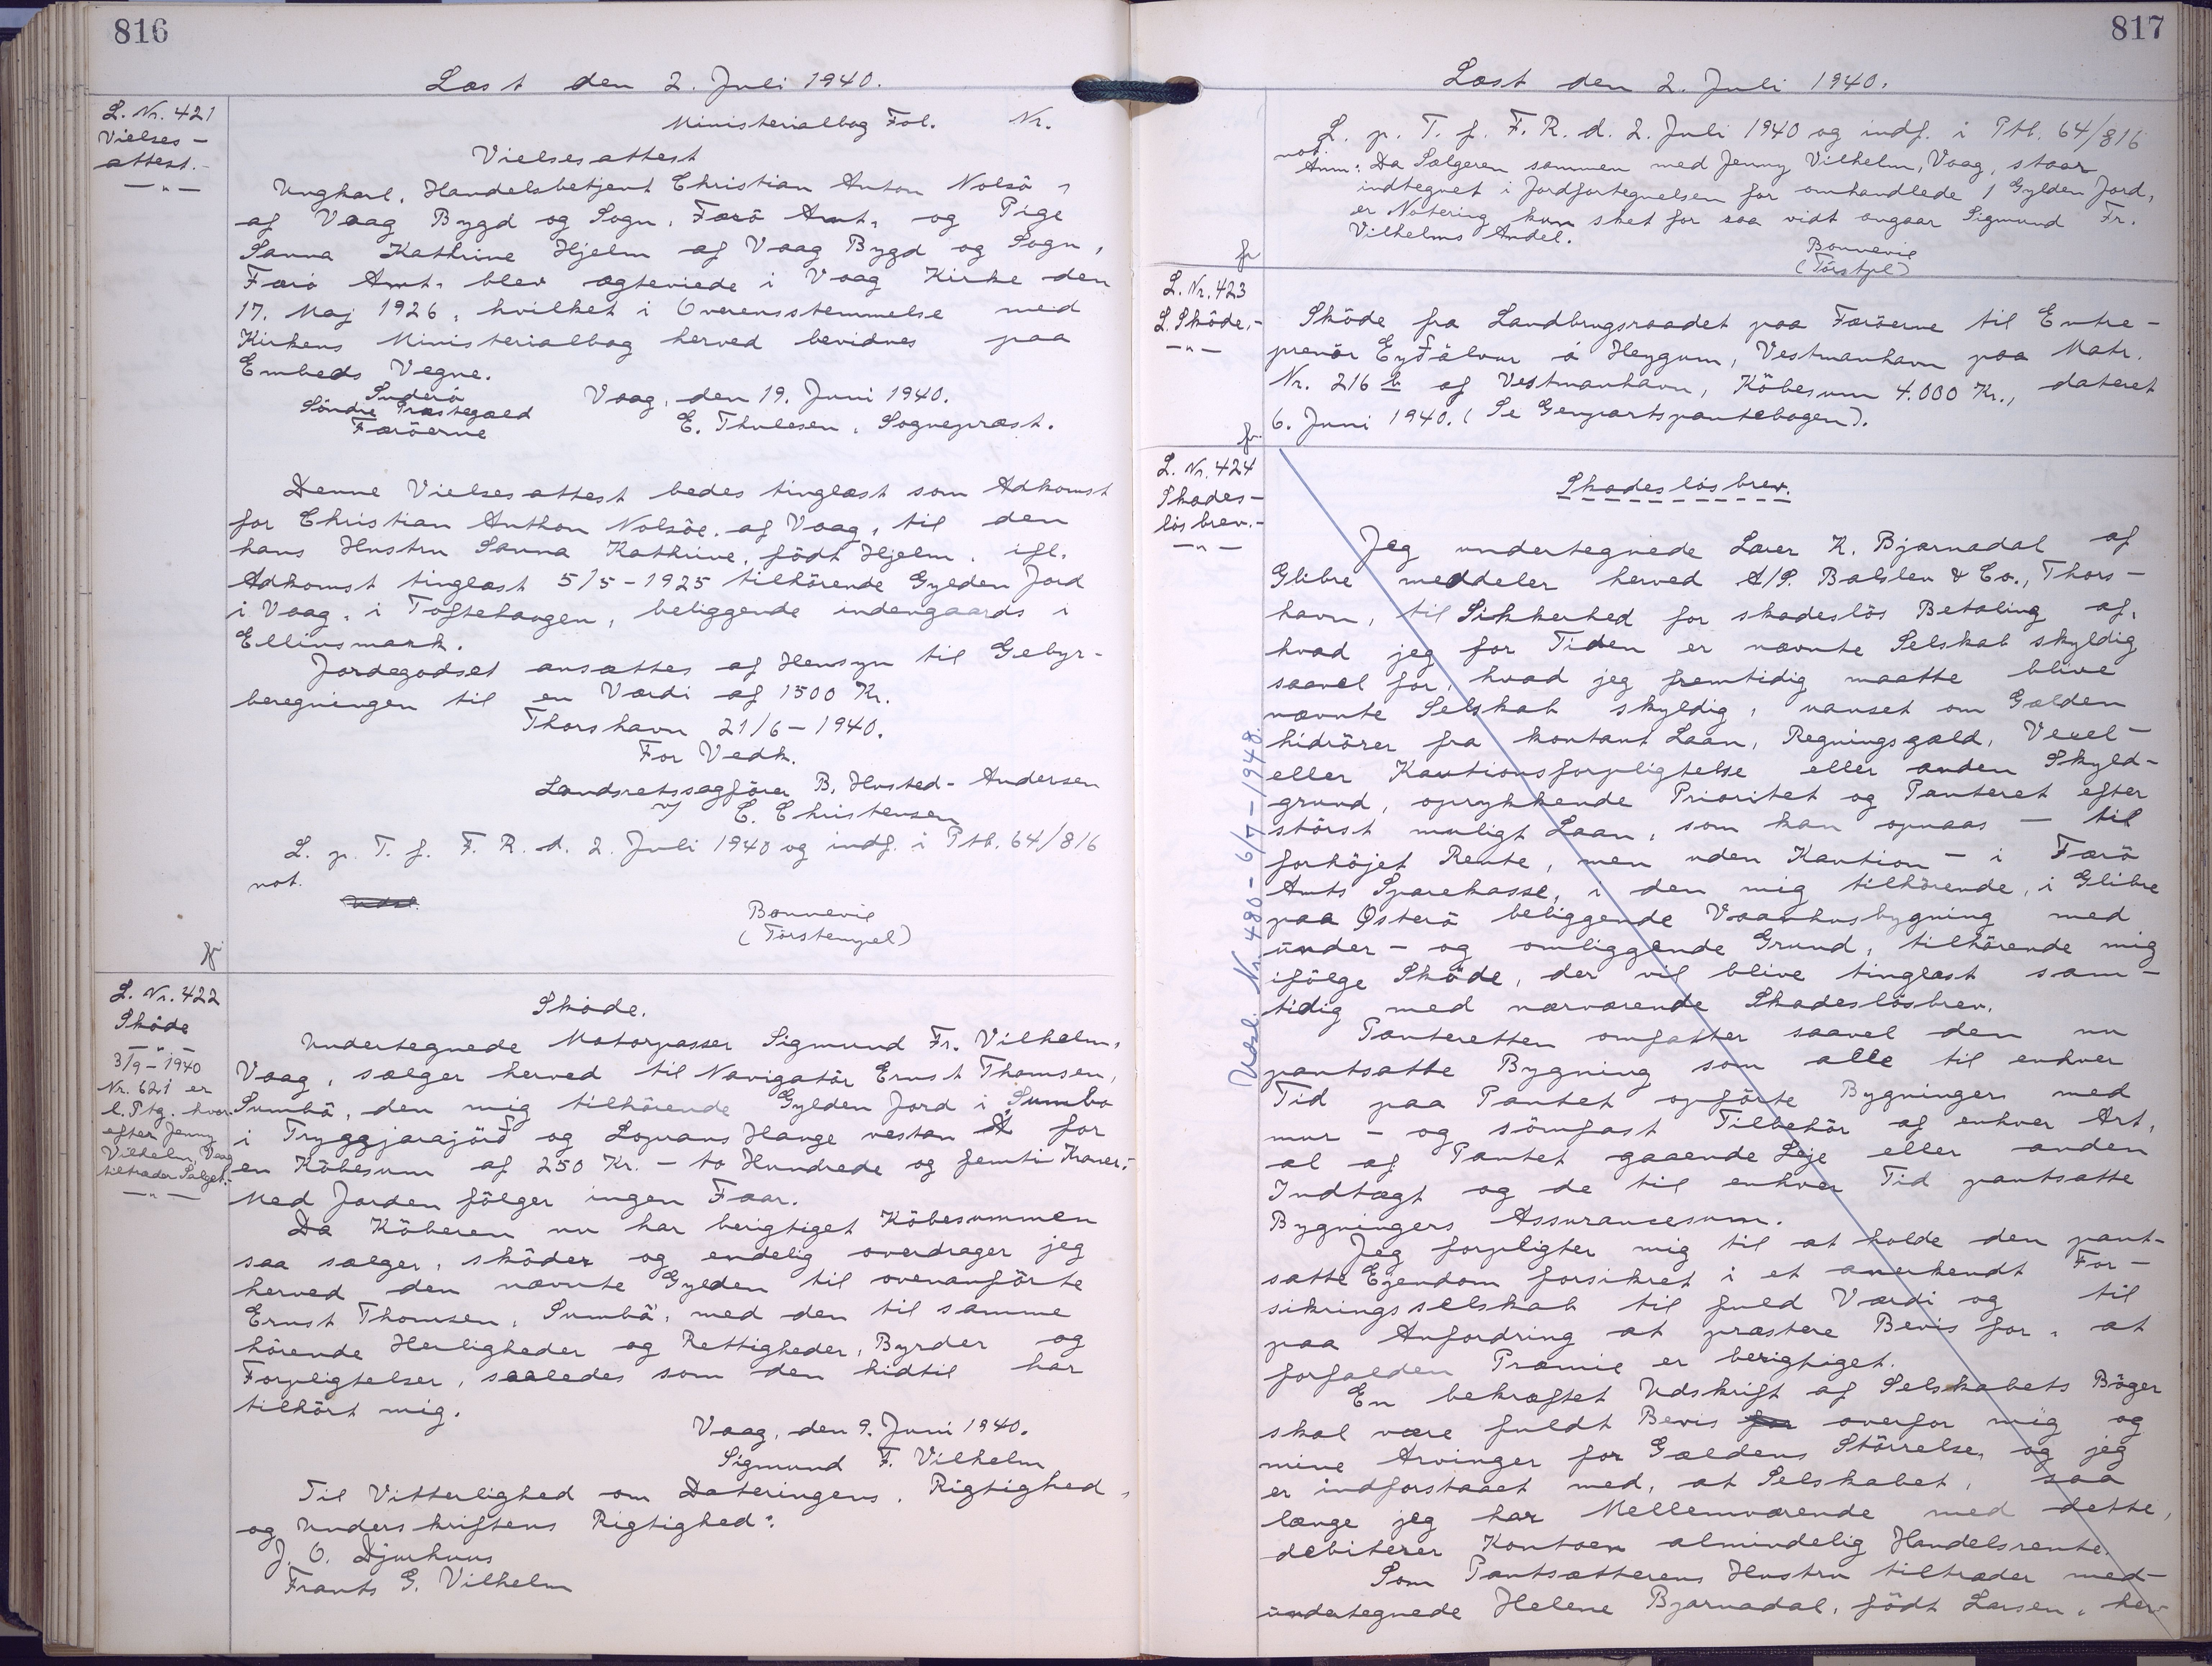 816
Læst den 2. Juli 1940.
L. Nr. 421
Vielses-
attest.-
—"—
Ministerialbog Fol. Nr.
Vielsesattest
Ungkarl, Handelsbetjent Christian Anton Nolsö,
af Vaag Bygd og Sogn, Færö Amt, og Pige
Sanna Kathrine Hjelm af Vaag Bygd og Sogn,
Færö Amt, blev ægteviede i Vaag Kirke den
17. Maj 1926, hvilket i Overensstemmelse med
Kirkens Ministerialbog herved bevidnes paa
Embeds Vegne.
Suderö
Söndre Præstegæld
Færöerne
Vaag, den 19. Juni 1940.
E. Thulesen, Sognepræst.
Denne Vielsesattest bedes tinglæst som Adkomst
for Christian Anthon Nolsöe, af Vaag, til den
hans Hustru Sanna Kathrine, födt Hjelm, ifl.
Adkomst tinglæst 5/5-1925 tilhörende Gylden Jord
i Vaag, i Toftehaugen, beliggende indengaards i
Ellinsmark.
Jordegodset ansættes af Hensyn til Gebyr-
beregningen til en Værdi af 1500 Kr.
Thorshavn 21/6-1940.
For Vedk.
Landsretssagförer B. Husted-Andersen
v/ E. Christensen
L. p. T. f. F. R. d. 2. Juli 1940 og indf. i Ptb. 64/816
not.
Udsl.
Bonnevie
(Törstempel)
fr
L. Nr. 422
Sköde
—"—
3/9-1940
Nr. 621 er
l. Ptg. hvor-
efter Jenny
Vilhelm, Vaag
tiltræder Salget.-
—"—
Sköde.
Undertegnede Motorpasser Sigmund Fr. Vilhelm,
Vaag, sælger herved til Navigatör Ernst Thomsen,
Sumbö, den mig tilhörende Gylden Jord i Sumbo
i Tryggjarajörð og Loprans Hauge vestan Á for
en Köbesum af 250 Kr. - to Hundrede og femti Kroner.-
Med Jorden fölger ingen Faar.
Da Köberen nu har berigtiget Köbesummen
saa sælger, sköder og endelig overdrager jeg
herved den nævnte Gylden til ovenanförte
Ernst Thomsen, Sumbö, med den til samme
hörende Herligheder og Rettigheder, Byrder og
Forpligtelser, saaledes som den hidtil har
tilhört mig.
Vaag, den 9. Juni 1940.
Sigmund F. Vilhelm
Til Vitterlighed om Dateringens, Rigtighed,
og Underskriftens Rigtighed:
J. O. Djurhuus
Frants G. Vilhelm
817
Læst den 2. Juli 1940.
L. p. T. f. F. R. d. 2. Juli 1940 og indf. i Ptb. 64/816
not.
Anm: Da Sælgeren sammen med Jenny Vilhelm, Vaag, staar
indtegnet i Jordfortegnelsen for omhandlede 1 Gylden Jord,
er Notering kun sket for saa vidt angaar Sigmund Fr.
Vilhelms Andel.
Bonnevie
(Törstpl)
fr
L. Nr. 423
L. Sköde.-
—"—
Sköde fra Landbrugsraadet paa Færöerne til Entre-
prenör Eyðálvur á Heygum, Vestmanhavn paa Matr.
Nr. 216 b af Vestmanhavn, Köbesum 4.000 Kr., dateret
6. Juni 1940. (Se Genpartspantebogen).
fr
L. Nr. 424
Skades-
lösbrev.-
—"—
Skadeslösbrev.
Jeg undertegnede Lærer K. Bjarnadal af
Glibre meddeler herved A/S. Balslev & Co., Thors-
havn, til Sikkerhed for skadeslös Betaling af,
hvad jeg for Tiden er nævnte Selskab skyldig
saavel for, hvad jeg fremtidig maatte blive
nævnte Selskab skyldig, uanset om Gælden
hidrörer fra kontant Laan, Regningsgæld, Vexel-
eller Kautionsforpligtelse eller anden Skyld-
grund, oprykkende Prioritet og Panteret efter
störst muligt Laan, som kan opnaas - til
forhöjet Rente, men uden Kaution - i Færö
Amts Sparekasse, i den mig tilhörende, i Glibre
paa Österö beliggende Vaanhusbygning med
under- og omliggende Grund, tilhörende mig
ifölge Sköde, der vil blive tinglæst sam-
tidig med nærværende Skadeslösbrev.
Panteretten omfatter saavel den nu
pantsatte Bygning som alle til enhver
Tid paa Pantet opförte Bygninger med
mur- og sömfast Tilbehör af enhver Art,
al af Pantet gaaende Leje eller anden
Indtægt og de til enhver Tid pantsatte
Bygningers Assurancesum.
Jeg forpligter mig til at holde den pant-
satte Ejendom forsikret i et anerkendt For-
sikringsselskab til fuld Værdi og til
paa Anfordring at præstere Bevis for, at
forfalden Præmie er berigtiget.
En bekræftet Udskrift af Selskabets Böger
skal være fuldt Bevis for overfor mig og
mine Arvinger for Gældens Störrelse, og jeg
er indforstaaet med, at Selskabet, saa
længe jeg har Mellemværende med dette,
debiterer Kontoen almindelig Handelsrente.
Som Pantsætterens Hustru tiltræder med-
undertegnede Helene Bjarnadal, födt Larsen, her-
Udsl. Nr. 480-6/7-1948.